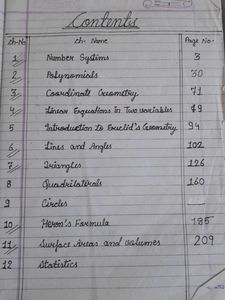 Contents
Ch-No Ch- Name Page No-
1 Number Systems 3
2 Polynomials 30
3 Coordinate Geometry 71
4 Linear Equations in Two variables 79
5 Introduction to Euclid's Geometry 94
6 Lines and Angles 102
7 Triangles 126
8 Quadrilaterals 160
9 Circles
10 Heron's Formula 185
11 Surface Areas and volumes 209
12 Statistics